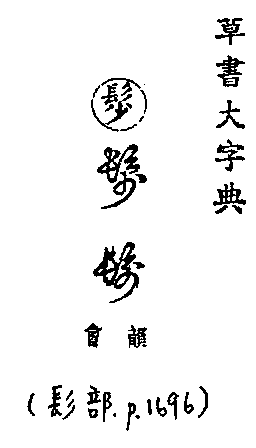 草書大字典
韻會
(髟部.p.1696)